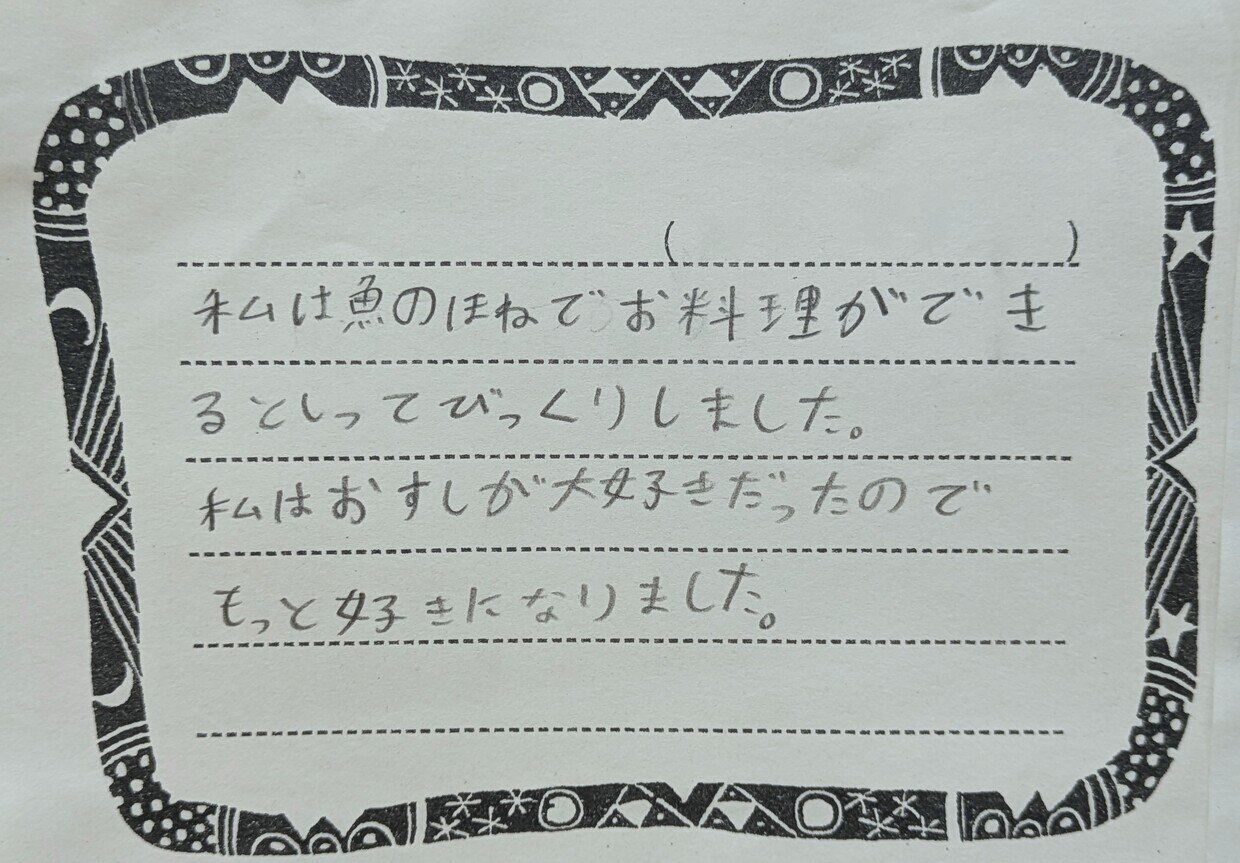 (　　　　　　)
私は魚のほねでお料理ができ
るとしってびっくりしました。
私はおすしが大好きだったので
もっと好きになりました。